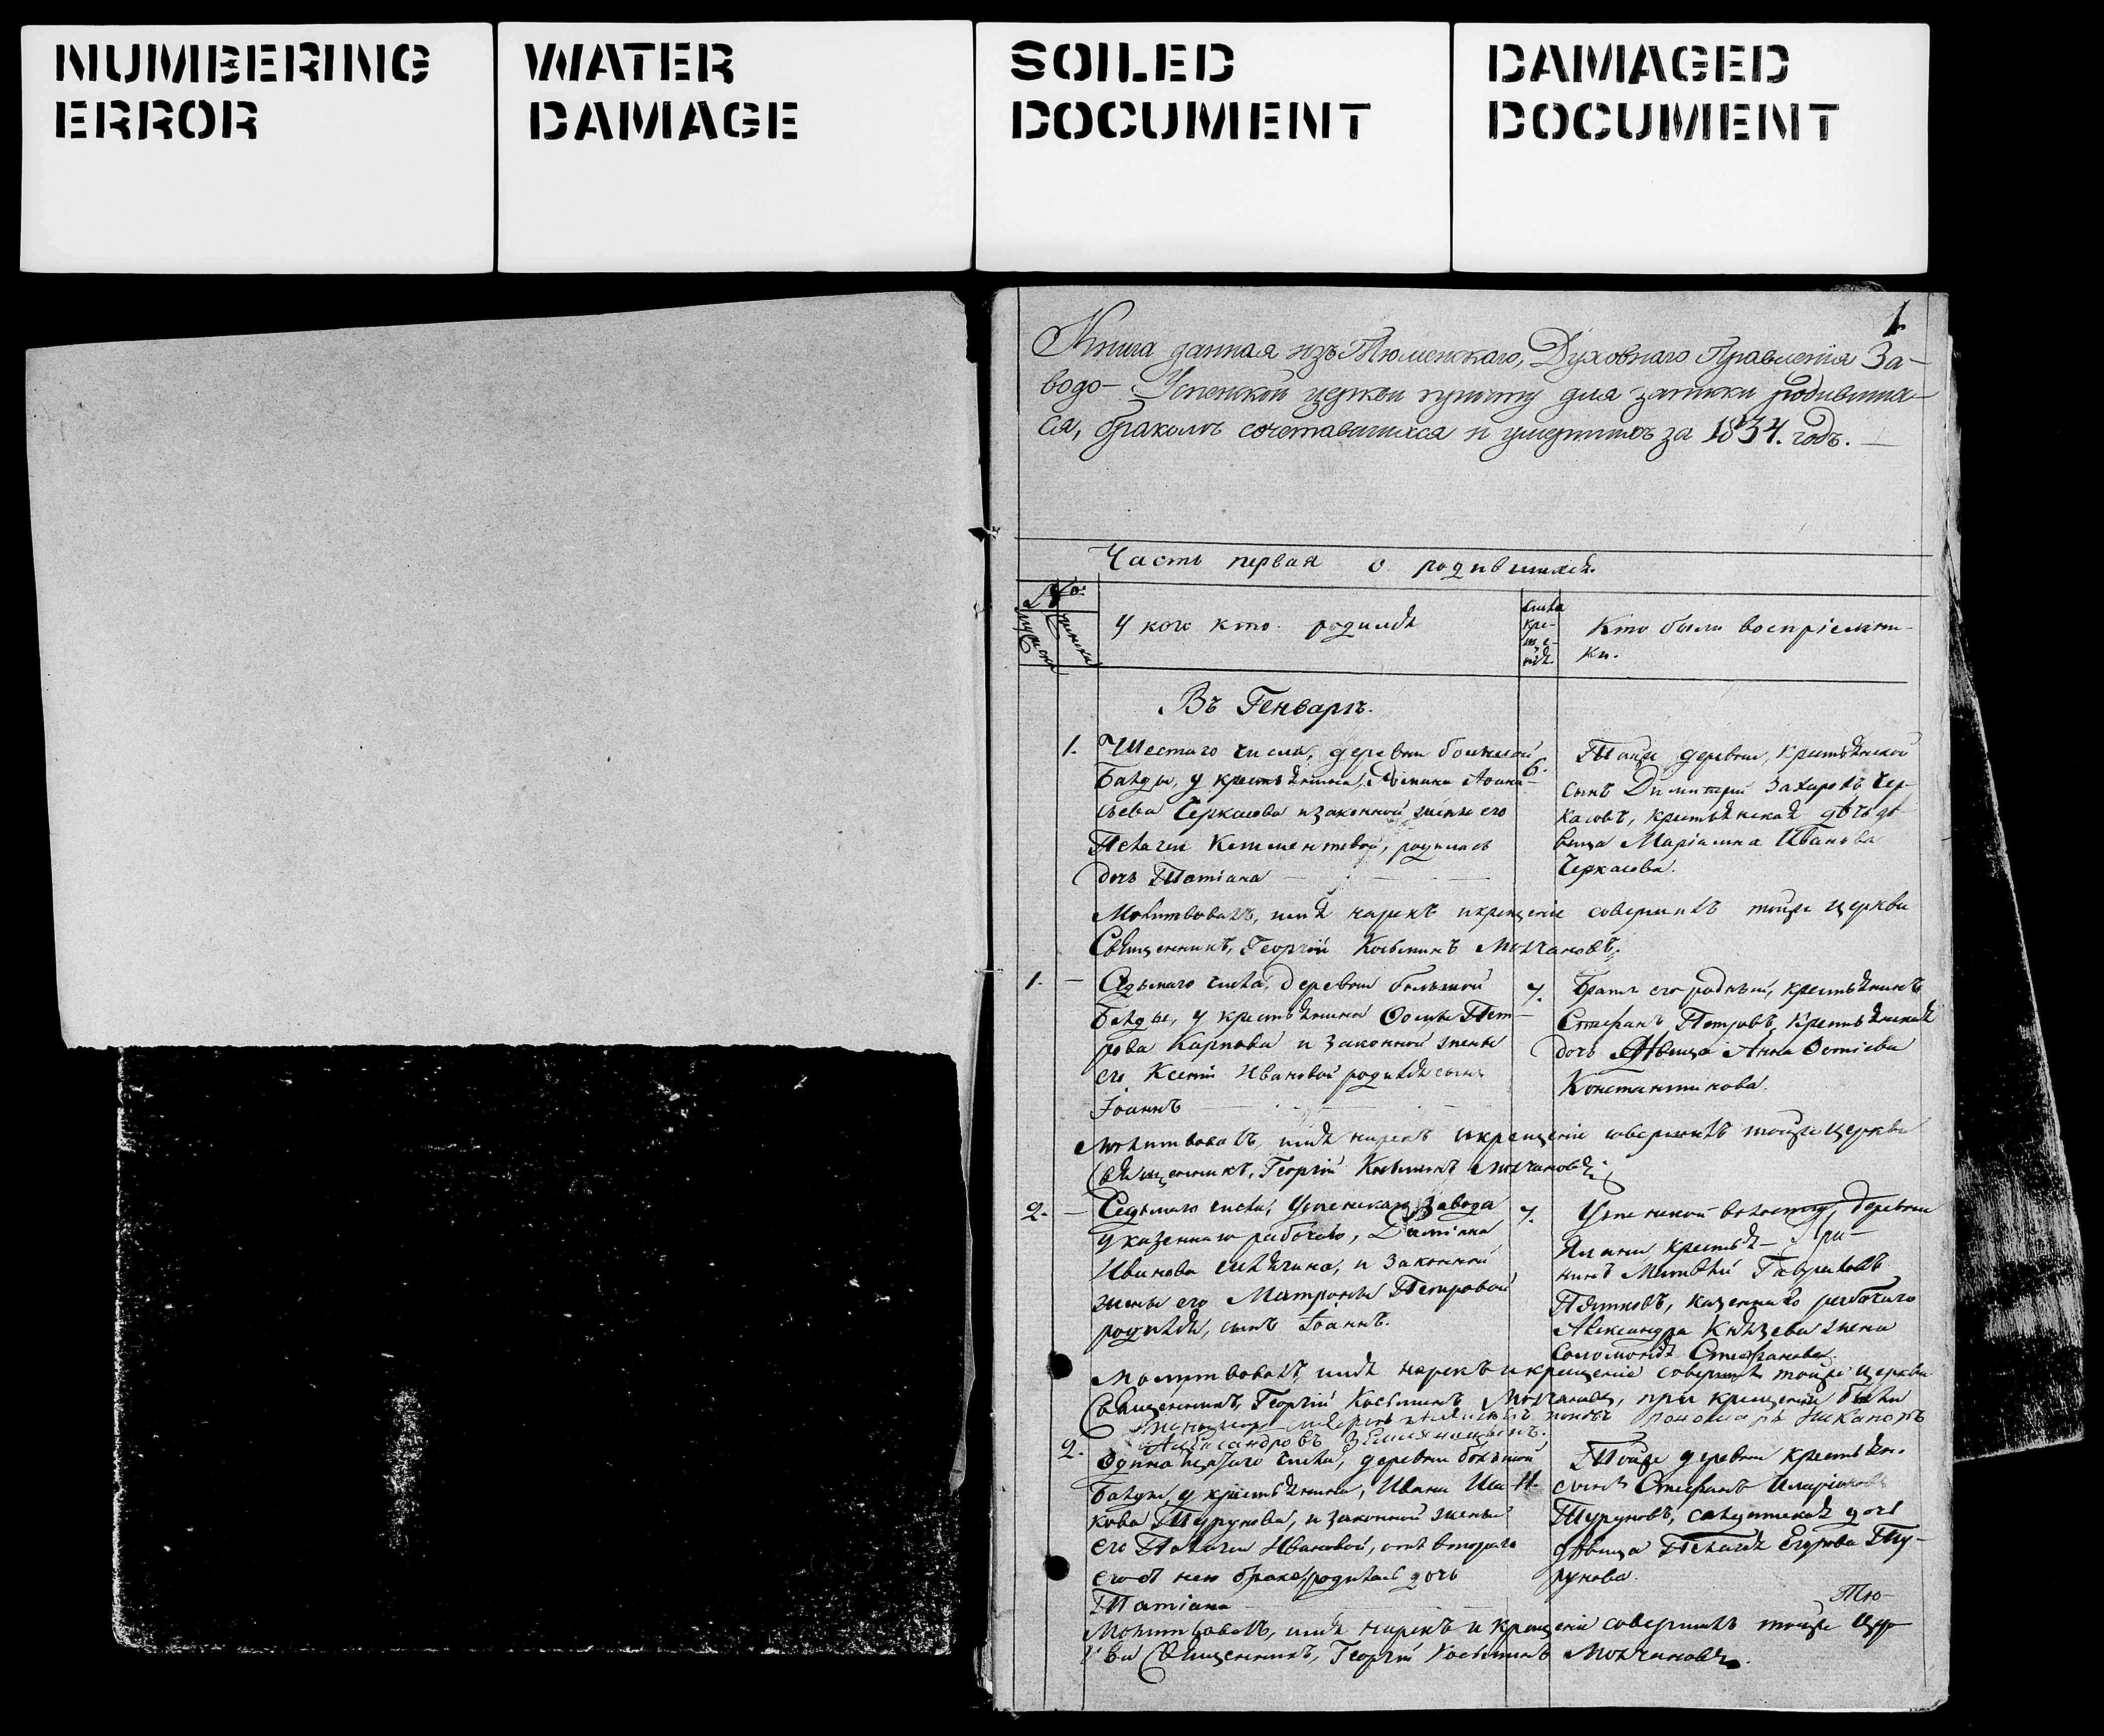 NUMBERING
ERROR
WATER
DAMAGE
SOILED
DOCUMENT
DAMAGED
DOCUMENT
1
Книга данная изъ Тюменскаго, Духовнаго Правленія За-
водо-Успенской церкви причту для записки родивших-
ся, бракомъ сочетавшихся и умершихъ за 1834. годъ.
Часть первая о родившихся.
№
мужеска
женска
У кого кто родился
числа
кре-
ще-
нія
Кто были воспріемни-
ки.
Въ Генварѣ.
1. Шестаго числа, деревни большой
у крестьянина
Черкасова и законной жены его
Пелагеи родилась
дочь Татіана
6.
Тойже деревни, крестьянской
сынъ Димитрій Захаровъ Чер-
касовъ, крестьянская дочь дѣ-
вица Маріанна Иванова
Черкасова.
Молитвовалъ, имя нарекъ и крещеніе совершилъ тойже церкви
Священникъ, Георгій Косьминъ Молчановъ.
1. Седьмаго числа, деревни большой
у крестьянина Осипа Пет-
рова Карпова и законной жены
его Ксеніи Ивановой родился сынъ
Іоаннъ
7.
Братъ его родный, крестьянинъ
Стефанъ Петровъ, крестьянская
дочь дѣвица Анна
Константинова.
Молитвовалъ, имя нарекъ и крещеніе совершилъ тойже церкви
Священникъ, Георгій Косьминъ Молчановъ
2. Седьмаго числа, Успенскаго завода
у казеннаго рабочаго,
Иванова и законной
жены его Матроны Петровой
родился, сынъ Іоаннъ.
7.
Успенской волости, деревни
крестья-
нинъ Матвѣй Гавриловъ
казеннаго рабочаго
Александра Князева жена
Соломонія Стефанова.
Молитвовалъ, имя нарекъ и крещеніе совершилъ тойже церкви
Священникъ, Георгій Косьминъ Молчановъ, при крещеніи были
пономарь Никаноръ
Александровъ
2. Одинацатаго числа, деревни большой
у крестьянина, Ивана
Турунова, и законной жены
его Пелагеи Ивановой, отъ втораго
его съ нею брака, родилась дочь
Татіана
11.
Тойже деревни крестьян.
сынъ Стефанъ Иларіоновъ
Туруновъ, дочь
дѣвица Пелагея Егорова Ту-
рунова.
Тю-
Молитвовалъ, имя нарекъ и крещеніе совершилъ тойже цер-
кви Священникъ, Георгій Косьминъ Молчановъ.